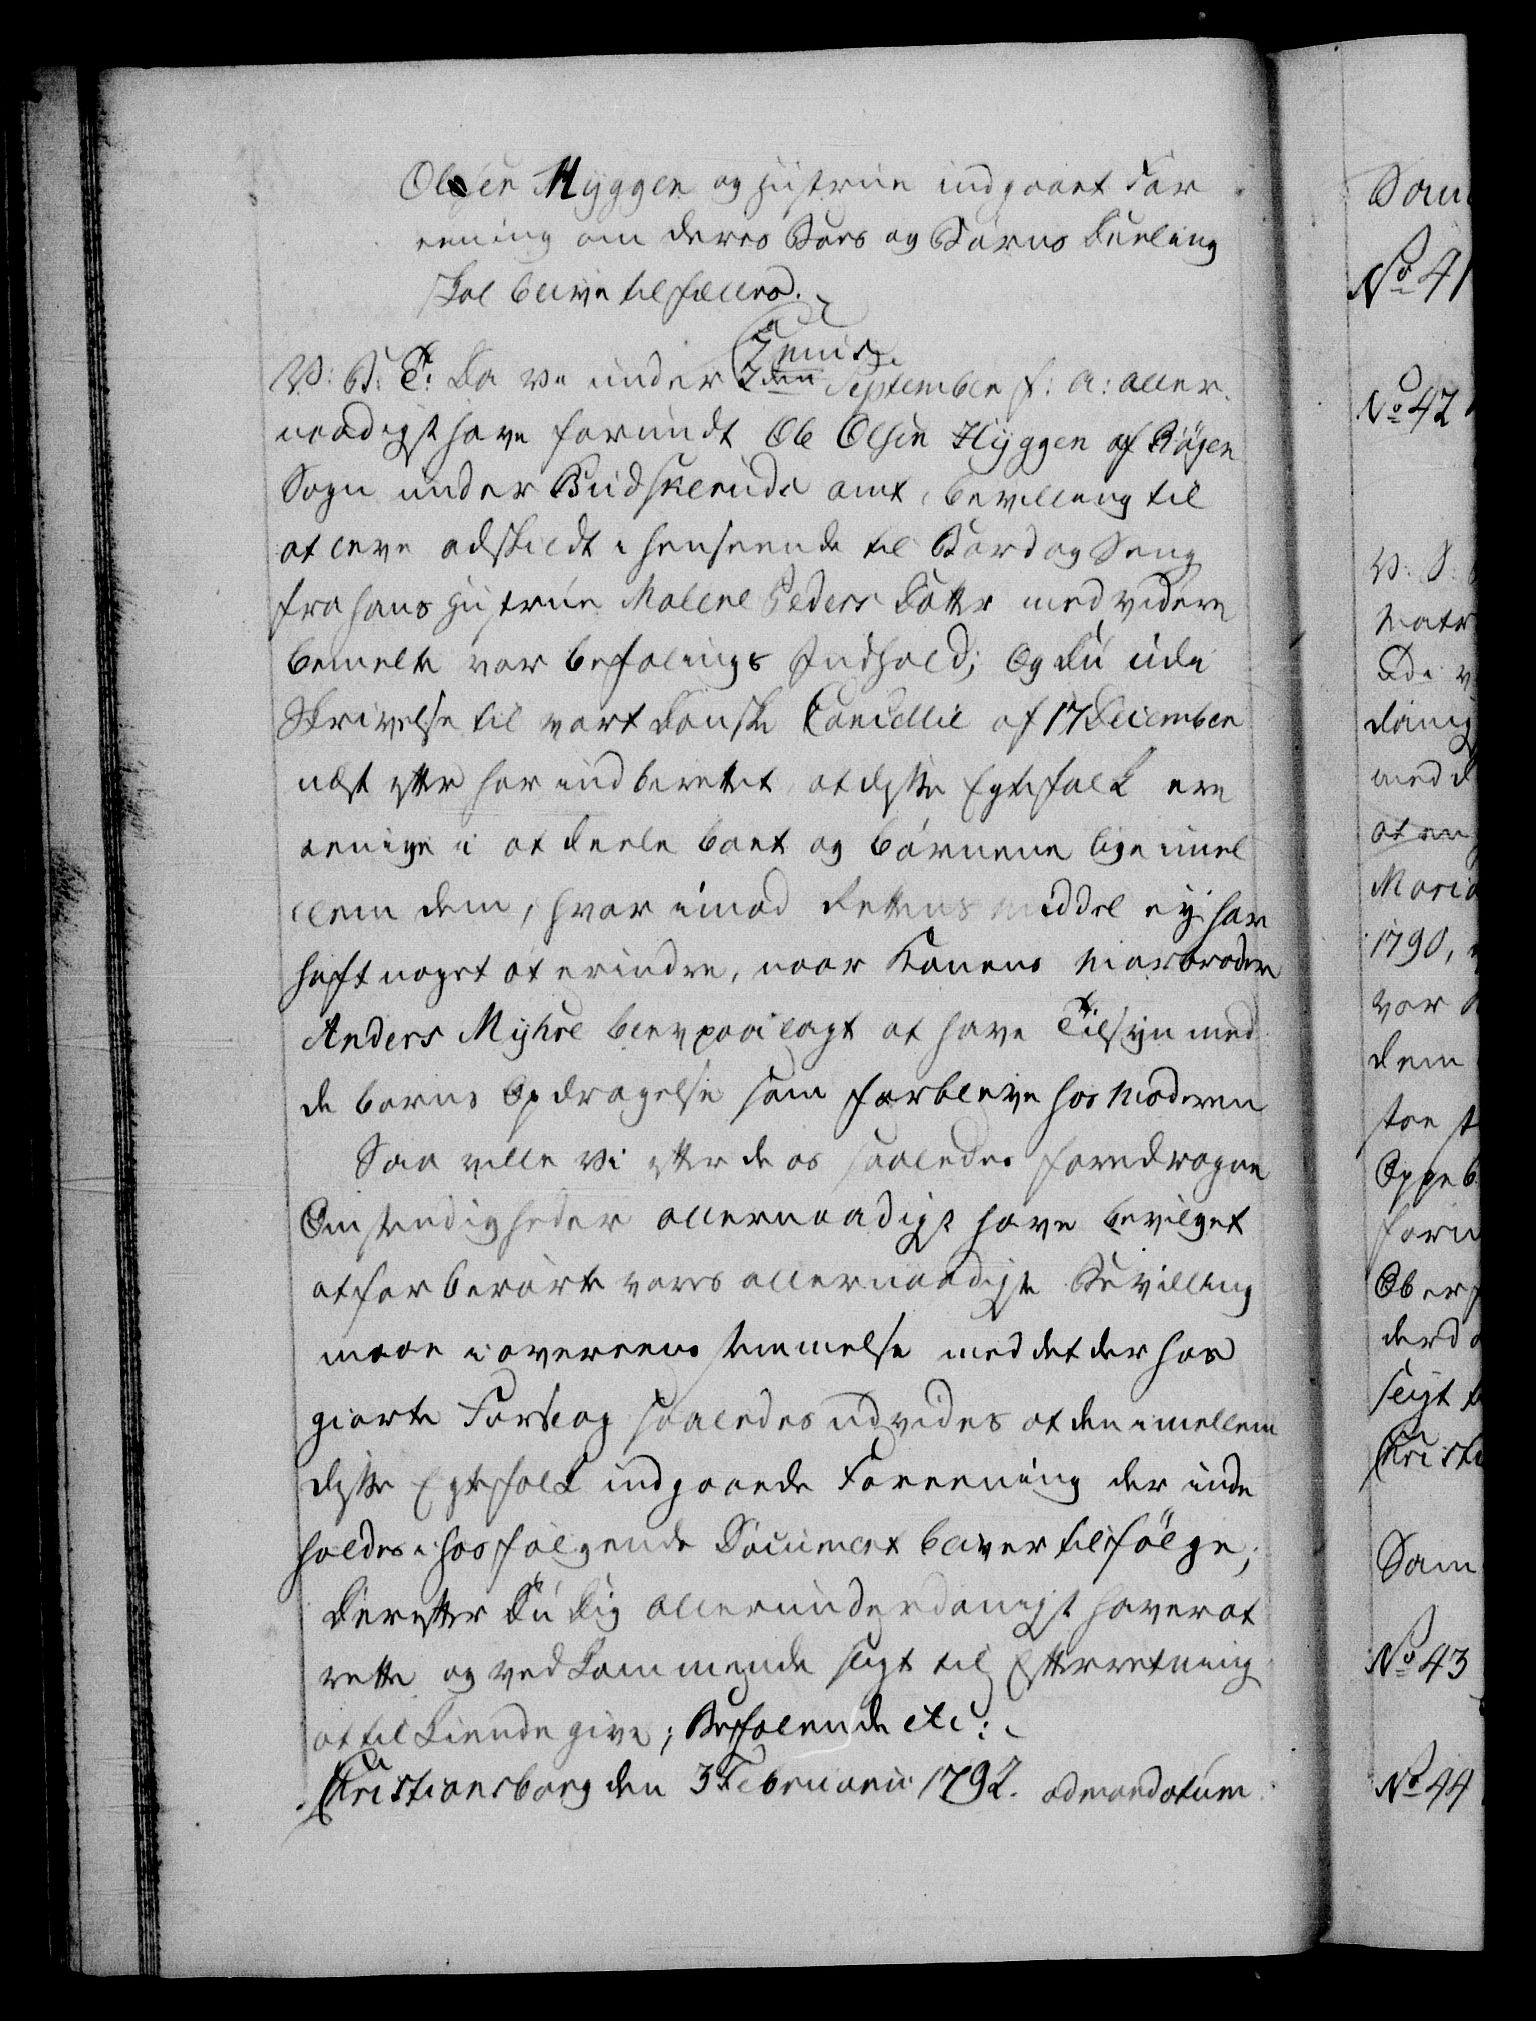 Olsen Hyggen og Hustrue indgaaet For
eening om deres Boes og Børns Deeling
skal blive tilfælles.
V: S: T: Da vi under 7den September f: A: aller¬
naadigst have forundt Ole Olsen Hyggen af Røgen
Sogn under Budskeruds amt, bevilling til
at leve adskildt i henseende til Bord og Seng
fra hans Hustrue Malene Peders Datter med videre
bemelte vor befalings Indhold; Og Du udi
Skrivelse til vort Danske Cancellie af 17 December
næst efter har indberettet, at disse Egtefolk ere
eenige i at deele boet og börnene lige imel
lem dem, hvor imod Rettens Middel ej har
haft noget at erindre, naar Konens Morbroder
Anders Myhre blev paalagt at have Tilsyn med
de børns Opdragelse som forbleve hos Moderen
Saa ville Vi efter de os saaledes foredragne
Omstendigheder allernaadigst have bevilget
at forberørte vores allernaadigste Bevilling
maae i overeensstemmelse med det der hos
giorte Forslag saaledes udvides at den imellem
disse Egtefolk indgaaede Foreening der inde
holdes i hosfølgende Document bliver tilfölge;
Derefter Du Dig allerunderdanigst haver at
rette og vedkommende sligt til Efterretning
at tilkiende give; Befalende etc:
Christiansborg den 3 Februarii 1792. ad mandatum
Sam
No 41
No 42
V: S:
Matr
Di
med d
at en
Maria
1790,
vor
dem
Oppeb
forn
Ober
sligt t
Christi
Sam
No 43
No 44